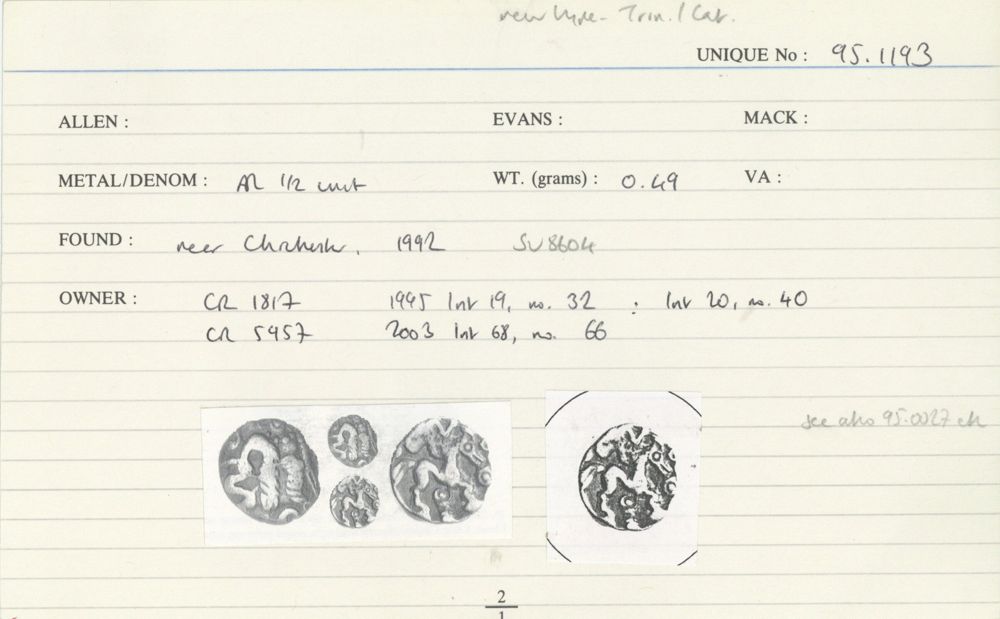 new type - Trin. / Cat.
UNIQUE No : 95.1193
ALLEN : EVANS : MACK :
METAL/DENOM : AR 1/2 unit WT. (grams) : 0.49 VA :
FOUND : near Chichester, 1992 SU 8604
OWNER : CR 1817 1995 Int 19, no. 32 ; Int 20, no. 40
CR 5957 2003 Int 68, no. 66
see also 95.0027
2
1